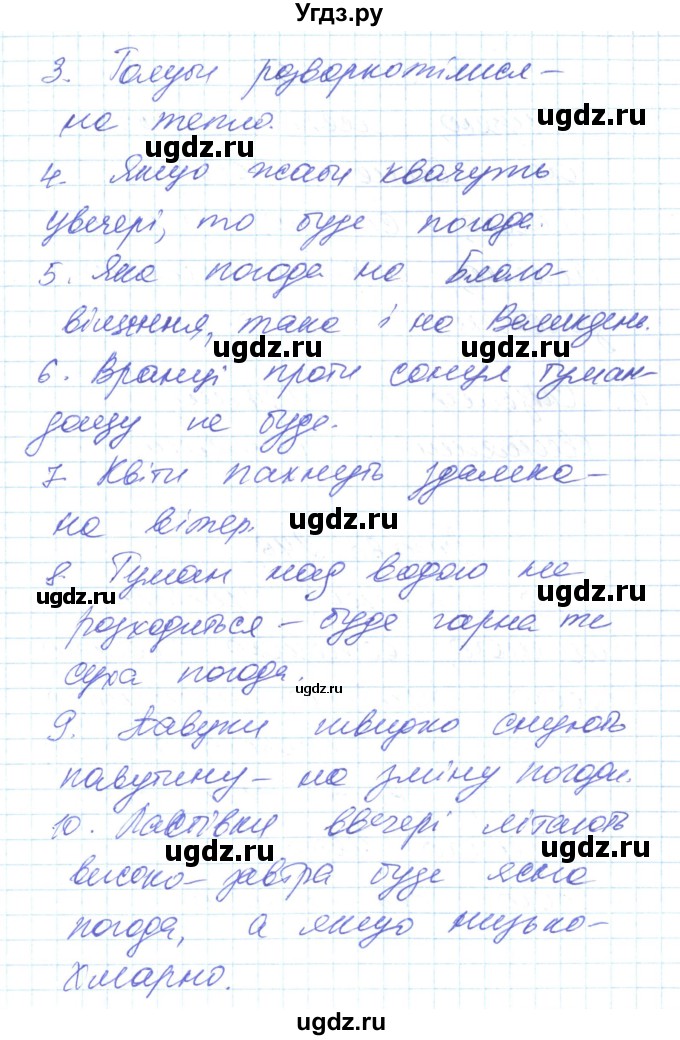 Угдз.ру
3. Голуби розворкотілися –
на тепло.
ugdz.ru
ugdz.ru
4. Якщо жаби квачуть
увечері, то буде погода.
5. Яка погода на Благо-
віщення, така і на Великдень.
ugdz.ru
ugdz.ru
6. Вранці проти сонця туман –
дощу не буде.
7. Квіти пахнуть здалека –
на вітер.
ugdz.ru
8. Туман над водою не
ugdz.ru
ugdz.ru
розходиться – буде гарна те
суха погода.
ugdz.ru
9. Павуки швидко снують
павутину – на зміну погоди.
10. Ластівки ввечері літають
ugdz.ru
ugdz.ru
високо – завтра буде ясна
погода, а якщо низько –
хмарно.
ugdz.ru